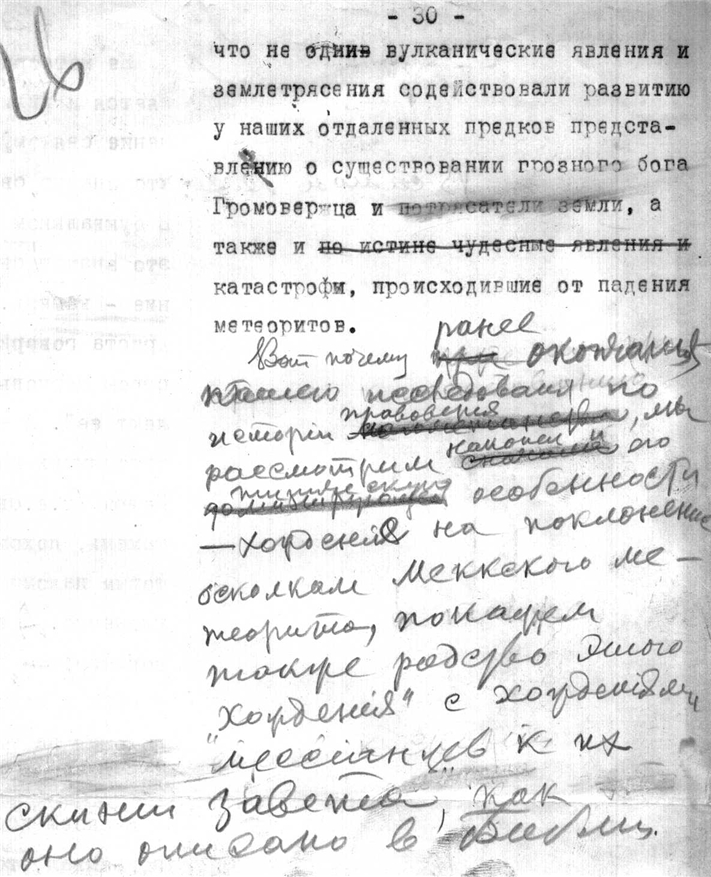 26
- 30 -
что не одни вулканические явления и
землетрясения содействовали развитию
у наших отдаленных предков предста-
влению о существовании грозного бога
Громовержца и потрясатели земли, а
также и по истине чудесные явления и
катастрофы, происходившие от падения
метеоритов.
ранее
Вот почему при окончания
нашего исследования по
правоверия
истории , мы
наконец и
рассмотрим сначала его
особенности
— хождения на поклонение
осколкам Меккского ме-
теорита, покажем
также родство этого
"хождения" с хождениями
"мессианцев к их
скинии завета", как
оно описано в Библии.